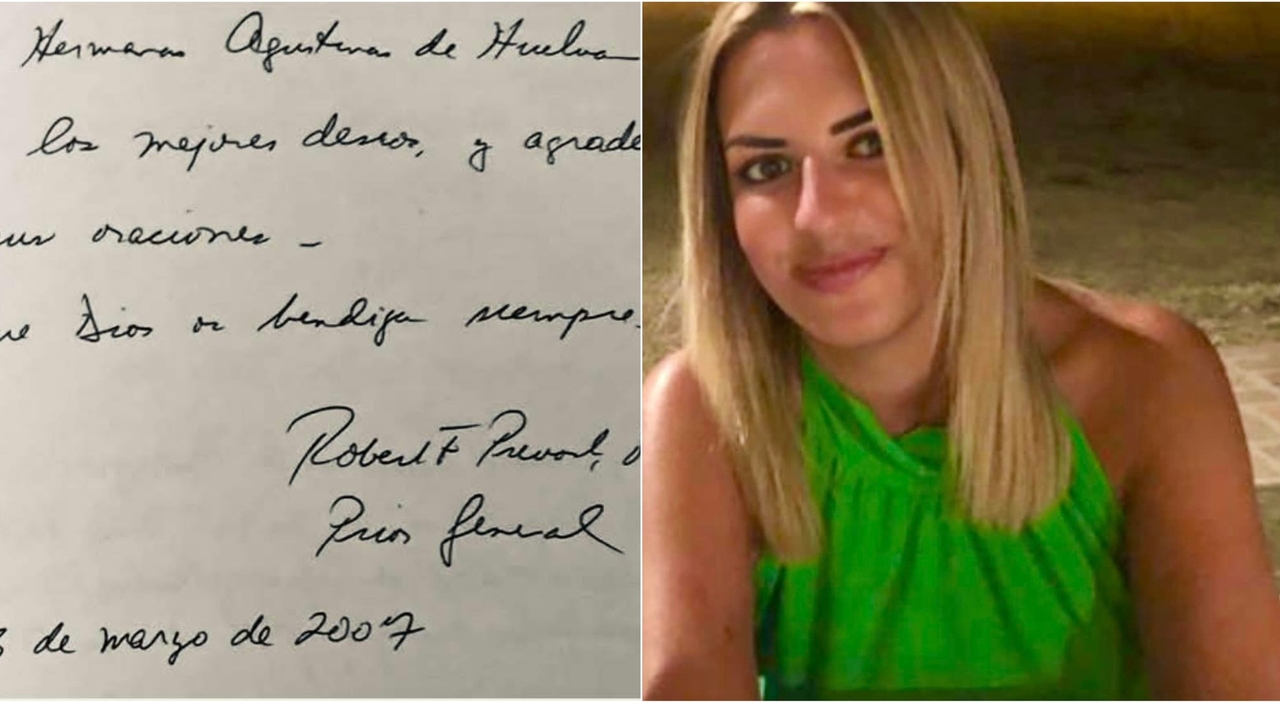 Hermanas Agustinas de Huelva
los mejores deseos, y agrade
sus oraciones -
ue Dios os bendiga siempre.
Robert F Prevost, O
Prior General
3 de marzo de 2007